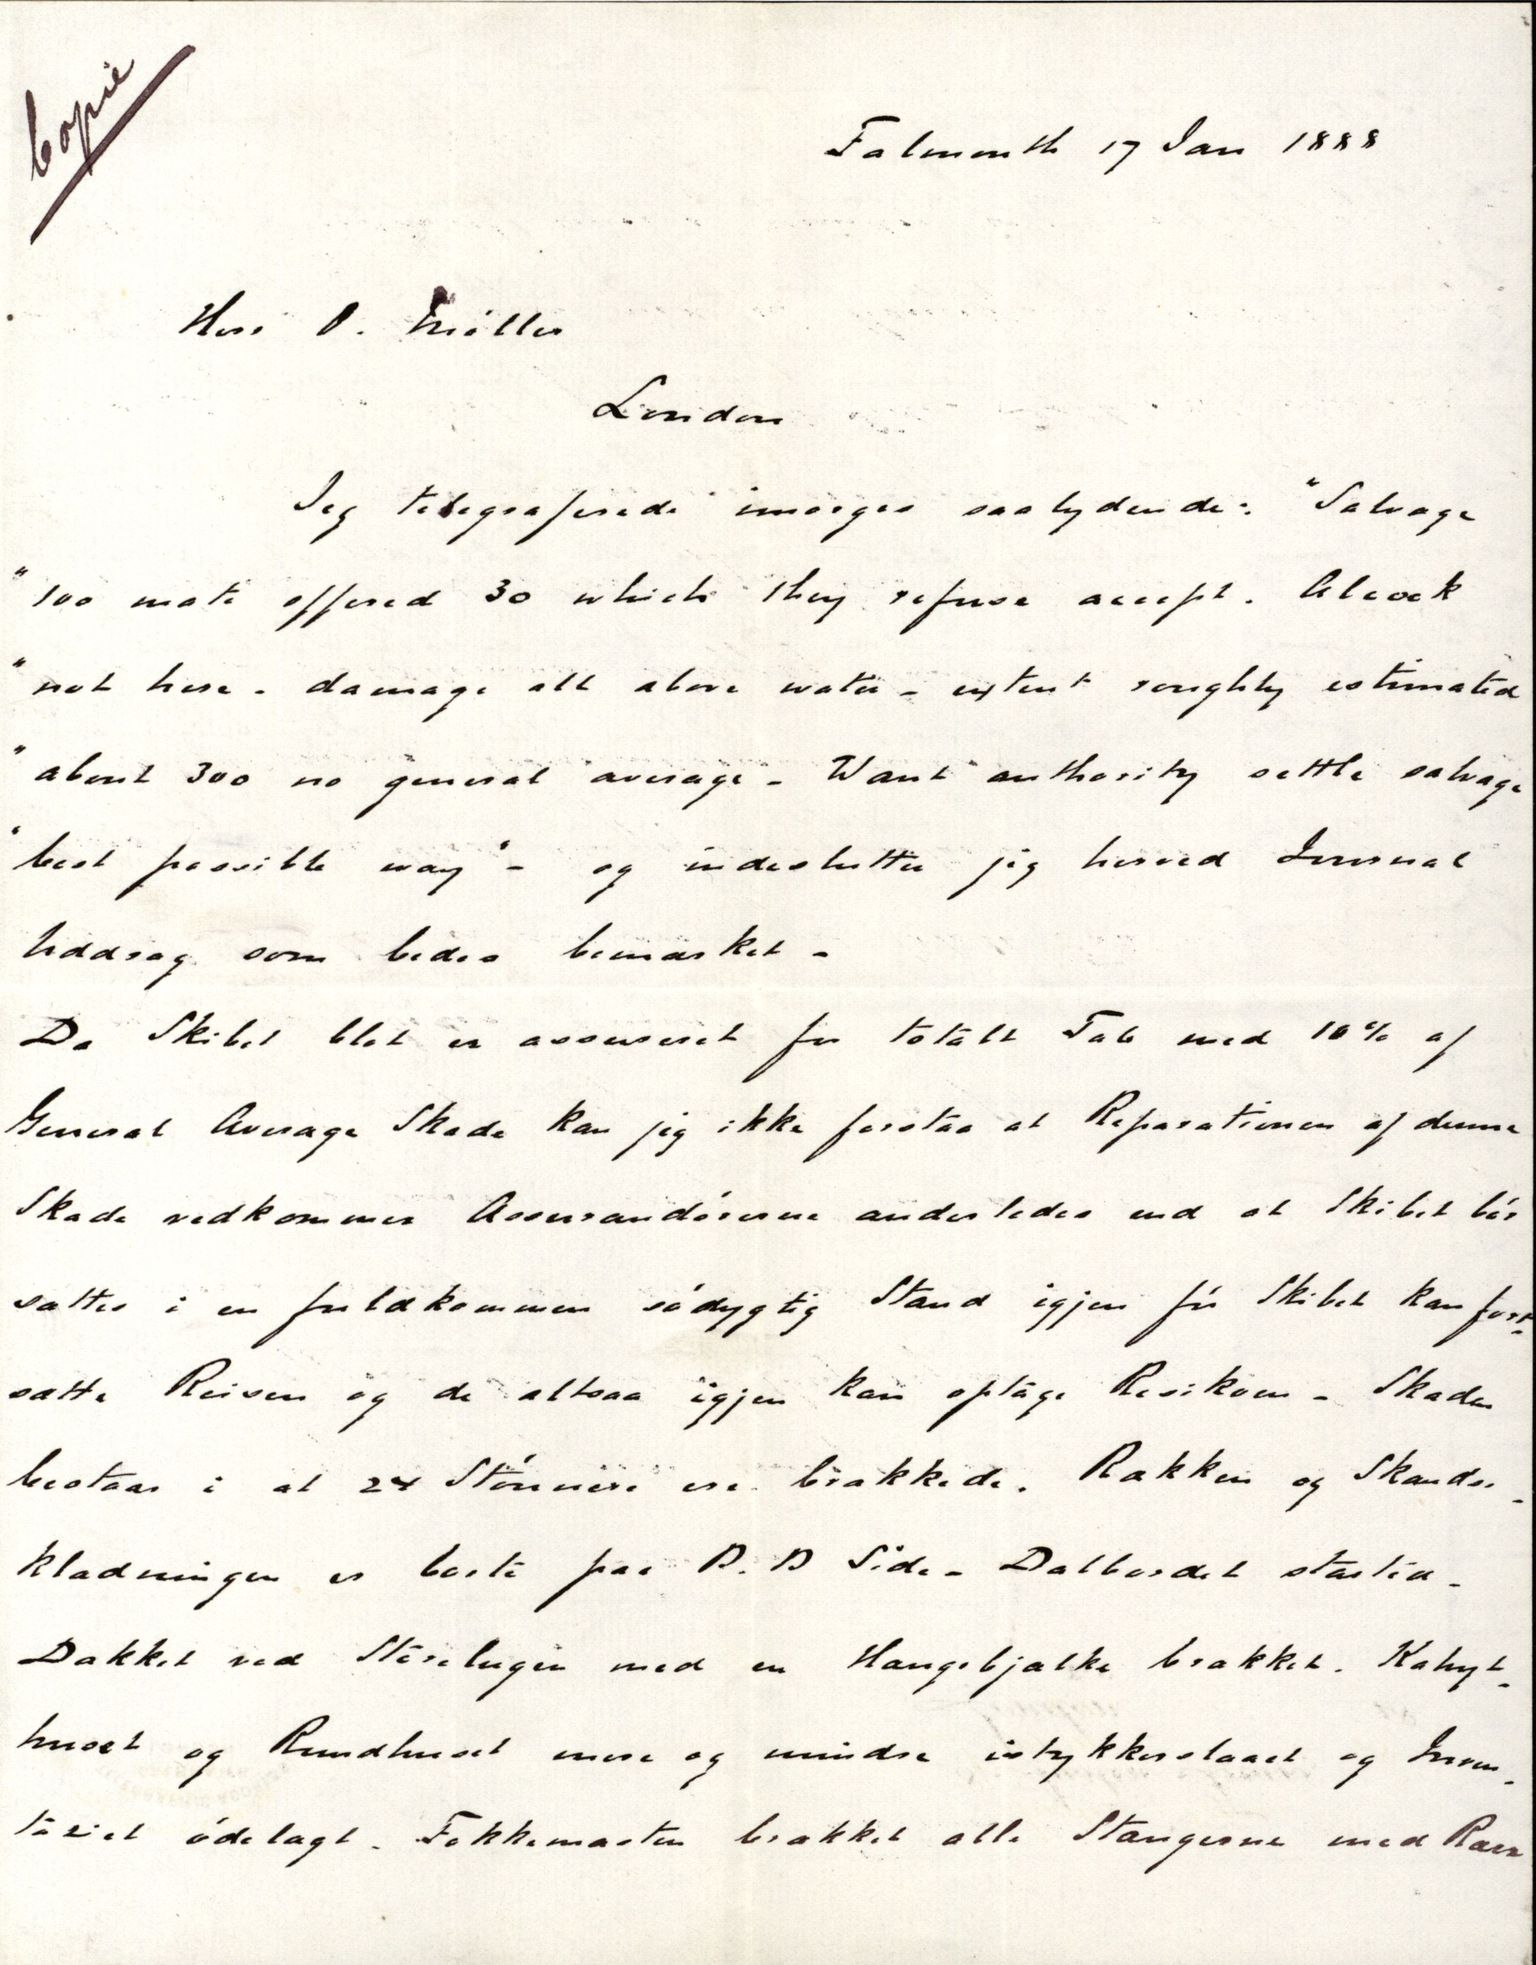 Copie
Falmouth 17 Jan 1888
Herr O. Möller
London
Jeg telegraferede imorges saalydende: "Salvage
"100 mate offered 30 which they refuse accept. Alcock
"not here - damage all above water - extent roughly estimated
"about 300 no general average - Want authority settle salvage
"best possible way" - og indeslutter jeg herved Journal
Uddrag som bedes bemærket -
Da Skibet blot er assureret for totalt Tab med 10% af
General Average Skade kan jeg ikke forstaa at Reparationen af denne
Skade vedkommer Assurandörerne anderledes end at Skibet bör
sættes i en fuldkommen södygtig Stand igjen för Skibet kan fort-
sætte Reisen og de altsaa igjen kan optage Resikoen - Skaden
bestaar i at 24 Stönner ere brækkede. Rækken og Skands-
klædningen er borte paa B.B Side - Dalbordet starten -
Dækket ved Storelugen med en Hangebjælke brækket. Kahyt-
huset og Rundhuset mere og mindre istykkerslaaet og Inven-
tariet ödelagt. Fokkemasten brækket alle Stængerne med Raaer